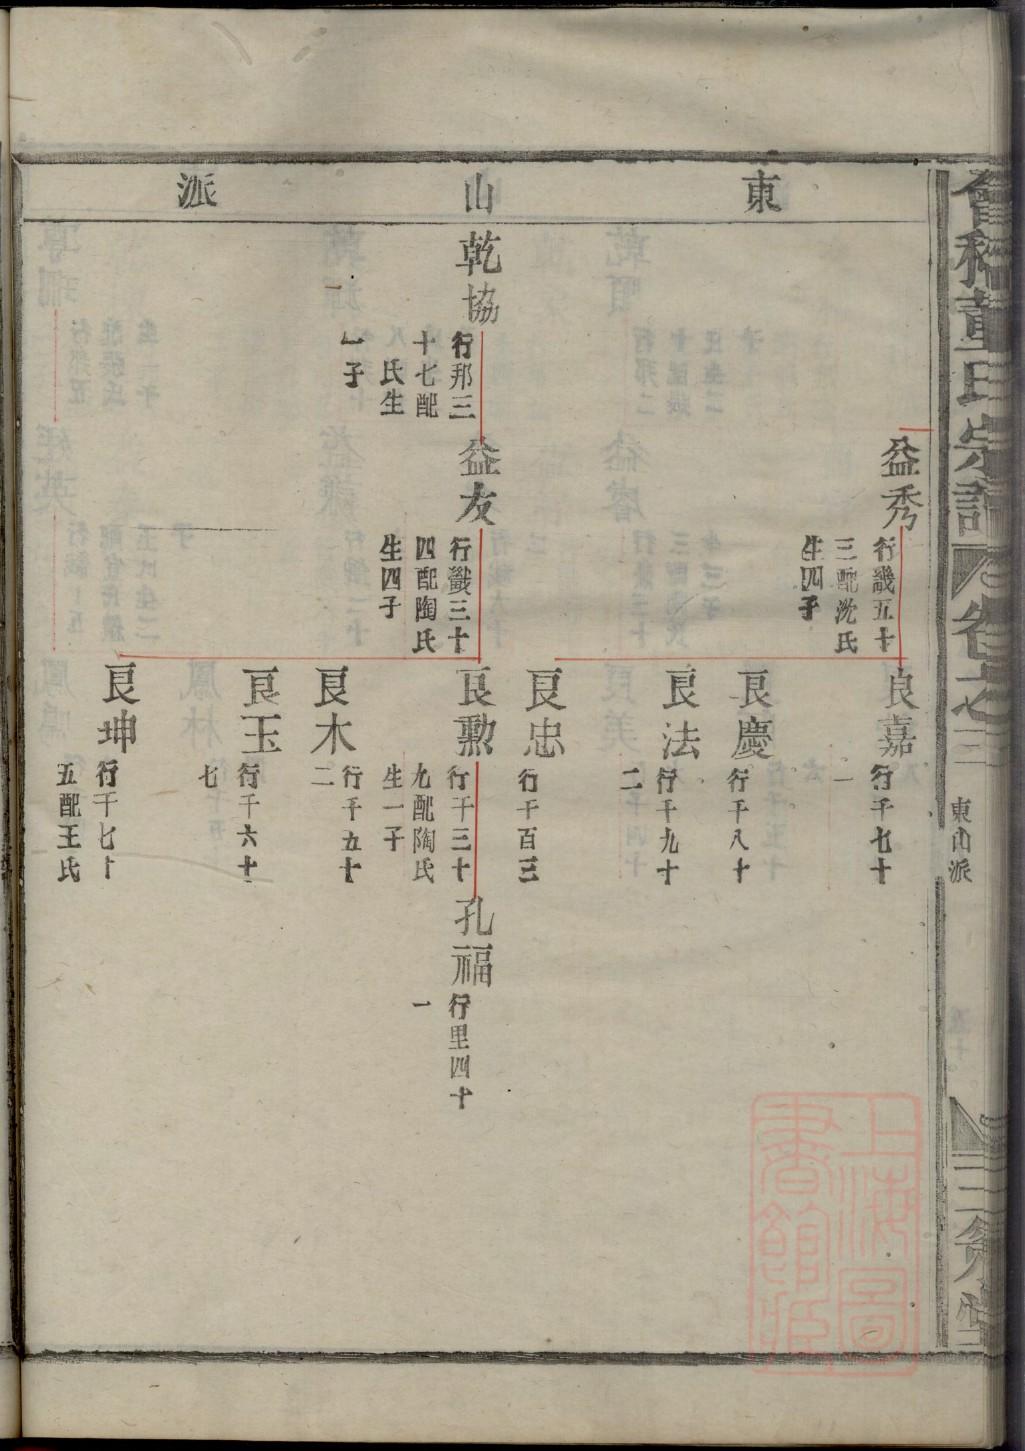 會稽董氏宗譜
東山派
東山派
益秀
行畿五十
三配沈氏
生四子
良嘉
行千七十
一
良慶
行千八十
良法
行千九十
二
良忠
行千百三
乾協
行邦三
十七配
氏生
一子
益友
行畿三十
四配陶氏
生四子
良勳
行千三十
九配陶氏
生一子
孔福
行里四十
一
良木
行千五十
二
良玉
行千六十
七
良坤
行千七十
五配王氏
上海圖
書館藏